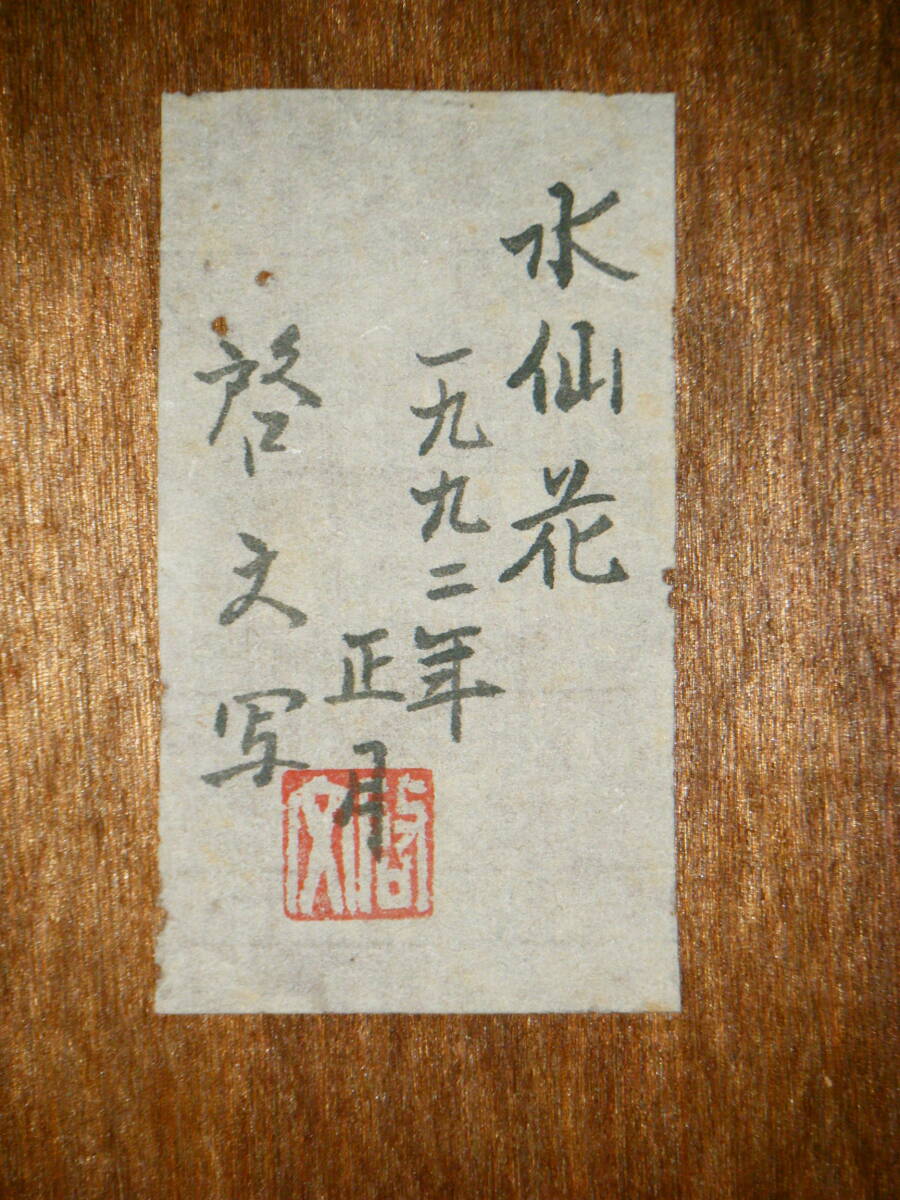 水仙花
一九九二年
正月
啓文写
啓文